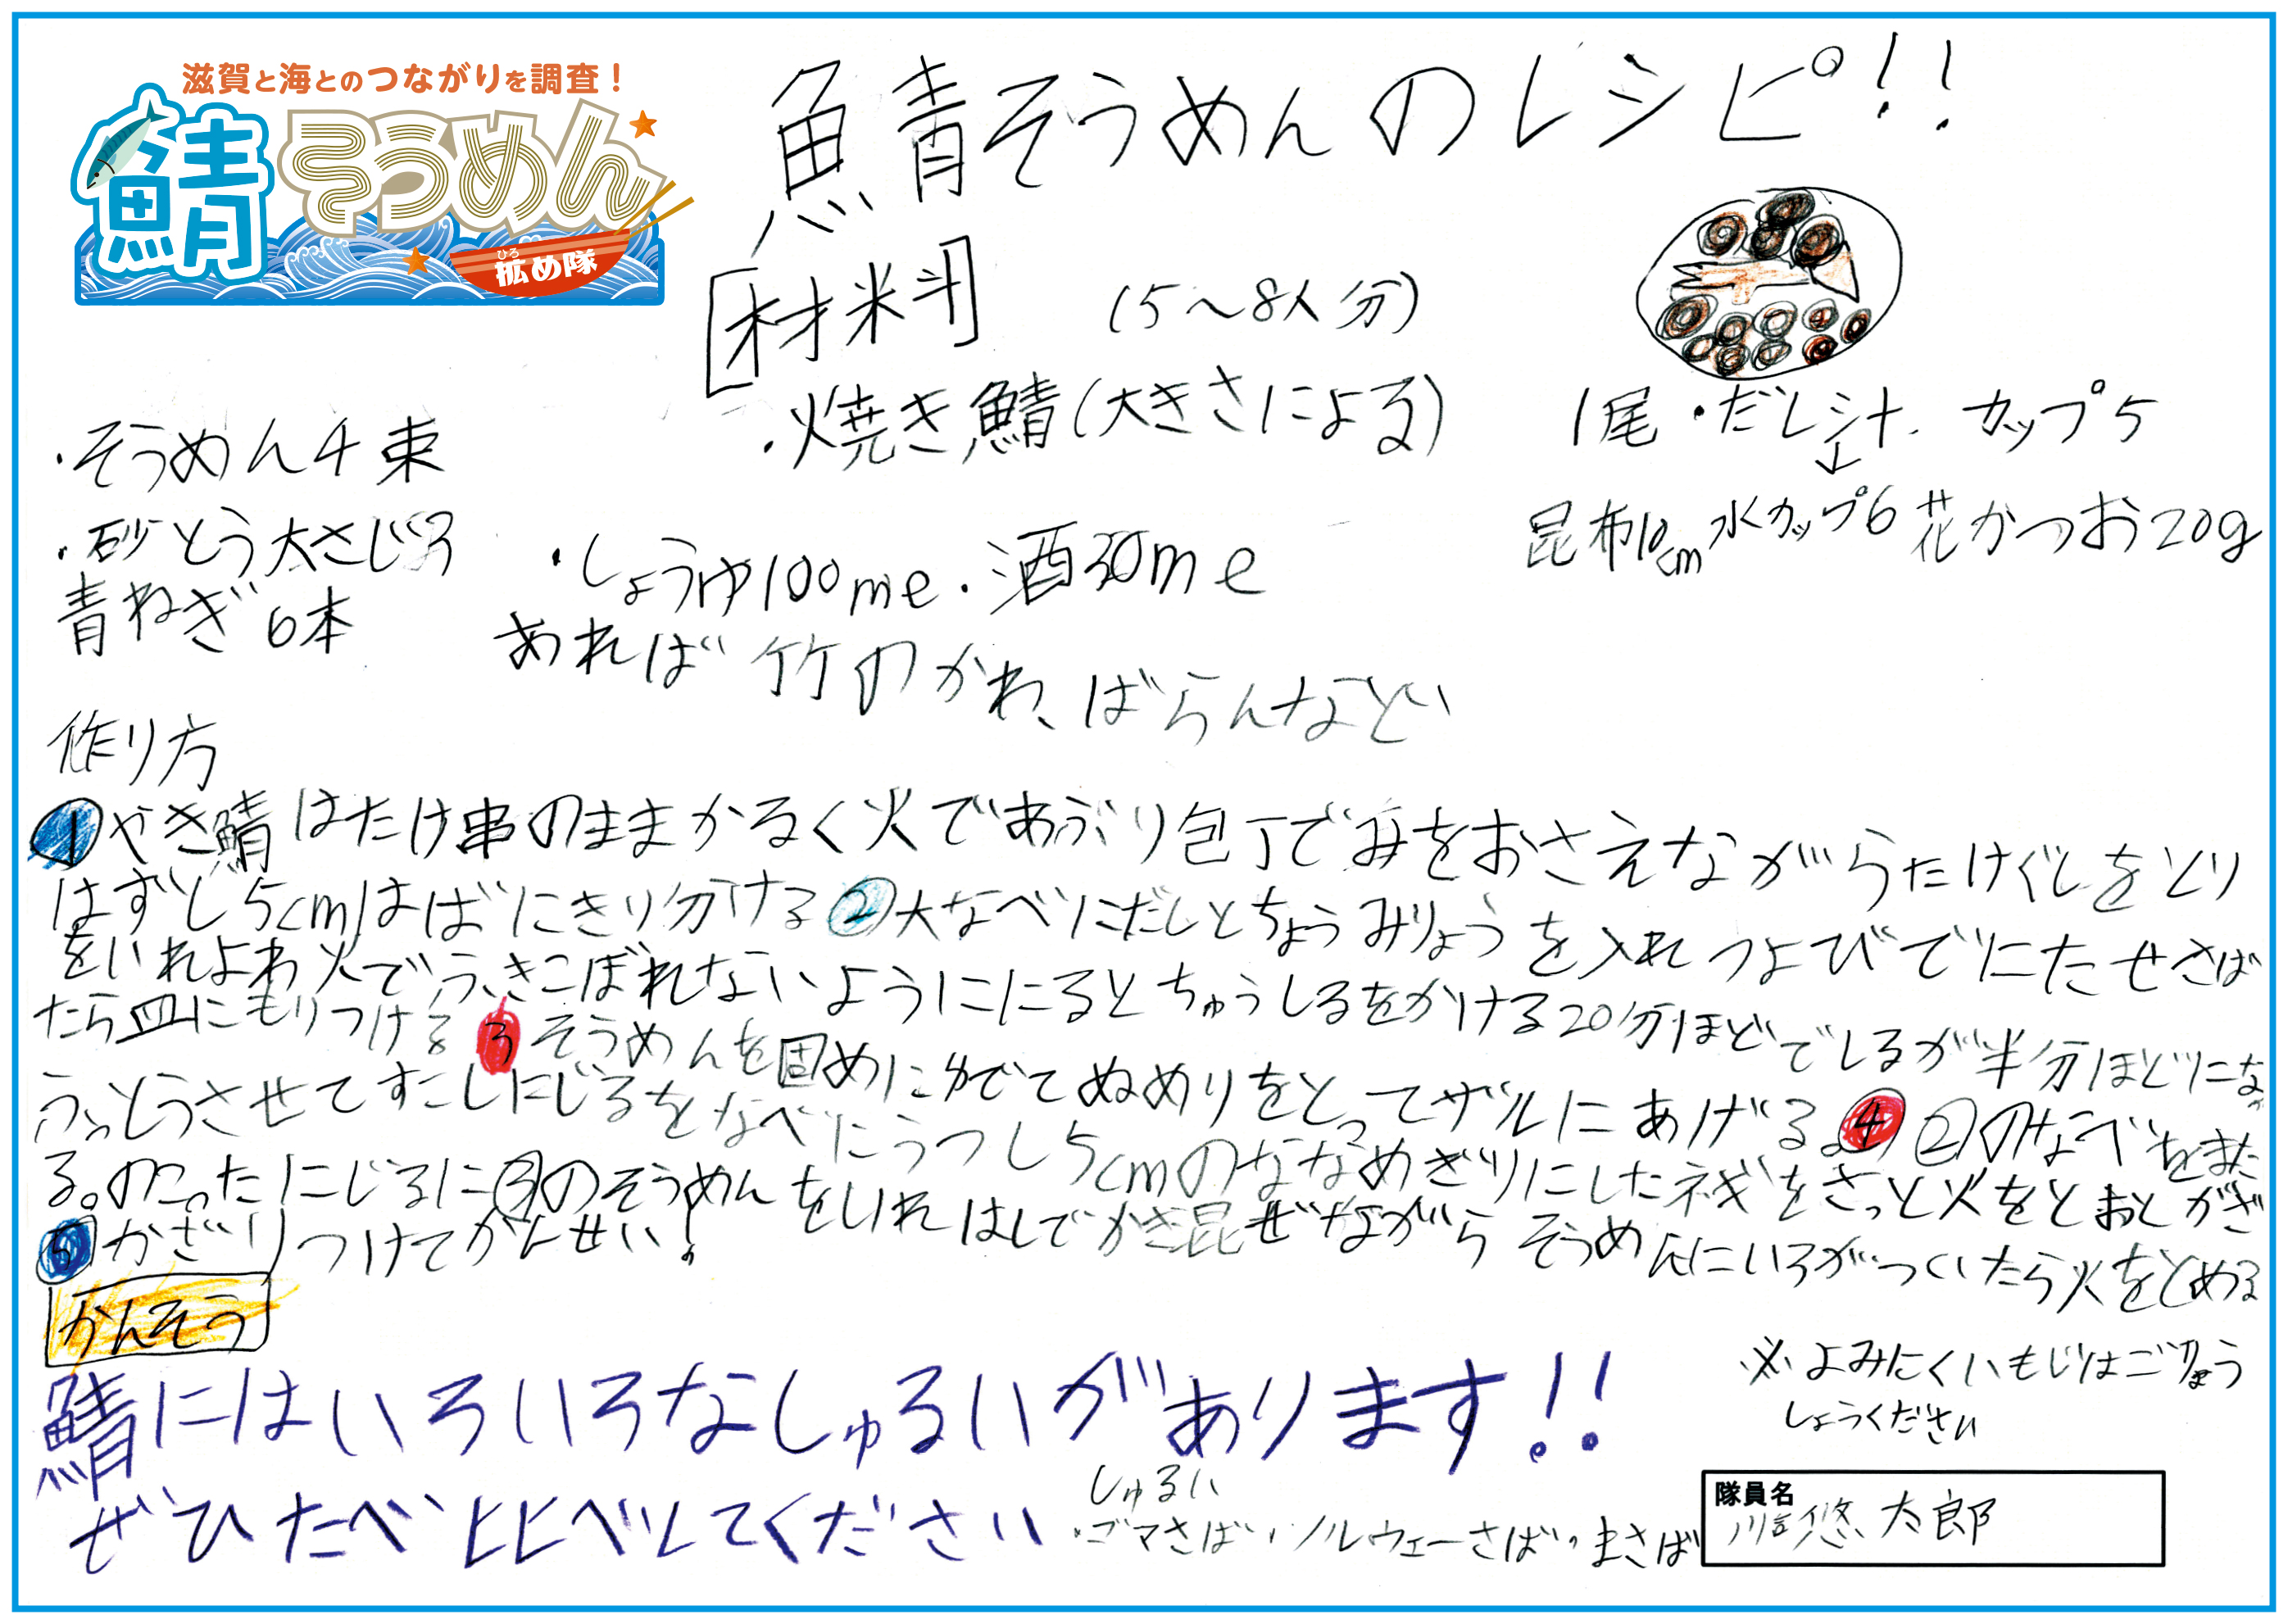 滋賀と海とのつながりを調査！
鯖そうめん
ひろ
拡め隊
鯖そうめんのレシピ!!
[材料] (5〜8人分)
・焼き鯖(大きさによる) 1尾・だし汁 カップ5
↓
昆布10cm 水カップ6 花かつお20g
・そうめん4束
・砂とう大さじ3 ・しょうゆ100ml・酒30ml
青ねぎ6本 あれば竹のかわ、ばらんなど
作り方
①やき鯖はたけ串のままかるく火であぶり包丁で身をおさえながらたけぐしをとり
はずし5cmはばにきり分ける②大なべにだしとちょうみりょうを入れつよびでにたせさば
をいれよわ火でふきこぼれないようににるとちゅうしるをかける20分ほどでしるが半分ほどにな
たら皿にもりつける③そうめんを固めにゆでてぬめりをとってザルにあげる。④②のなべをまた
ふっとうさせてすこしにじるをなべにうつし5cmのななめぎりにしたネギをさっと火をとおし
る。のこったにじるに③のそうめんをいれはしでかき混ぜながらそうめんにいろがついたら火をとめる
⑤かざりつけてかんせい!
かんそう
鯖にはいろいろなしゅるいがあります!!
ぜひたべ比べしてください
しゅるい
・ゴマさば・ノルウェーさば・まさば
※よみにくいもじはごりょう
しょうください
隊員名
悠太郎